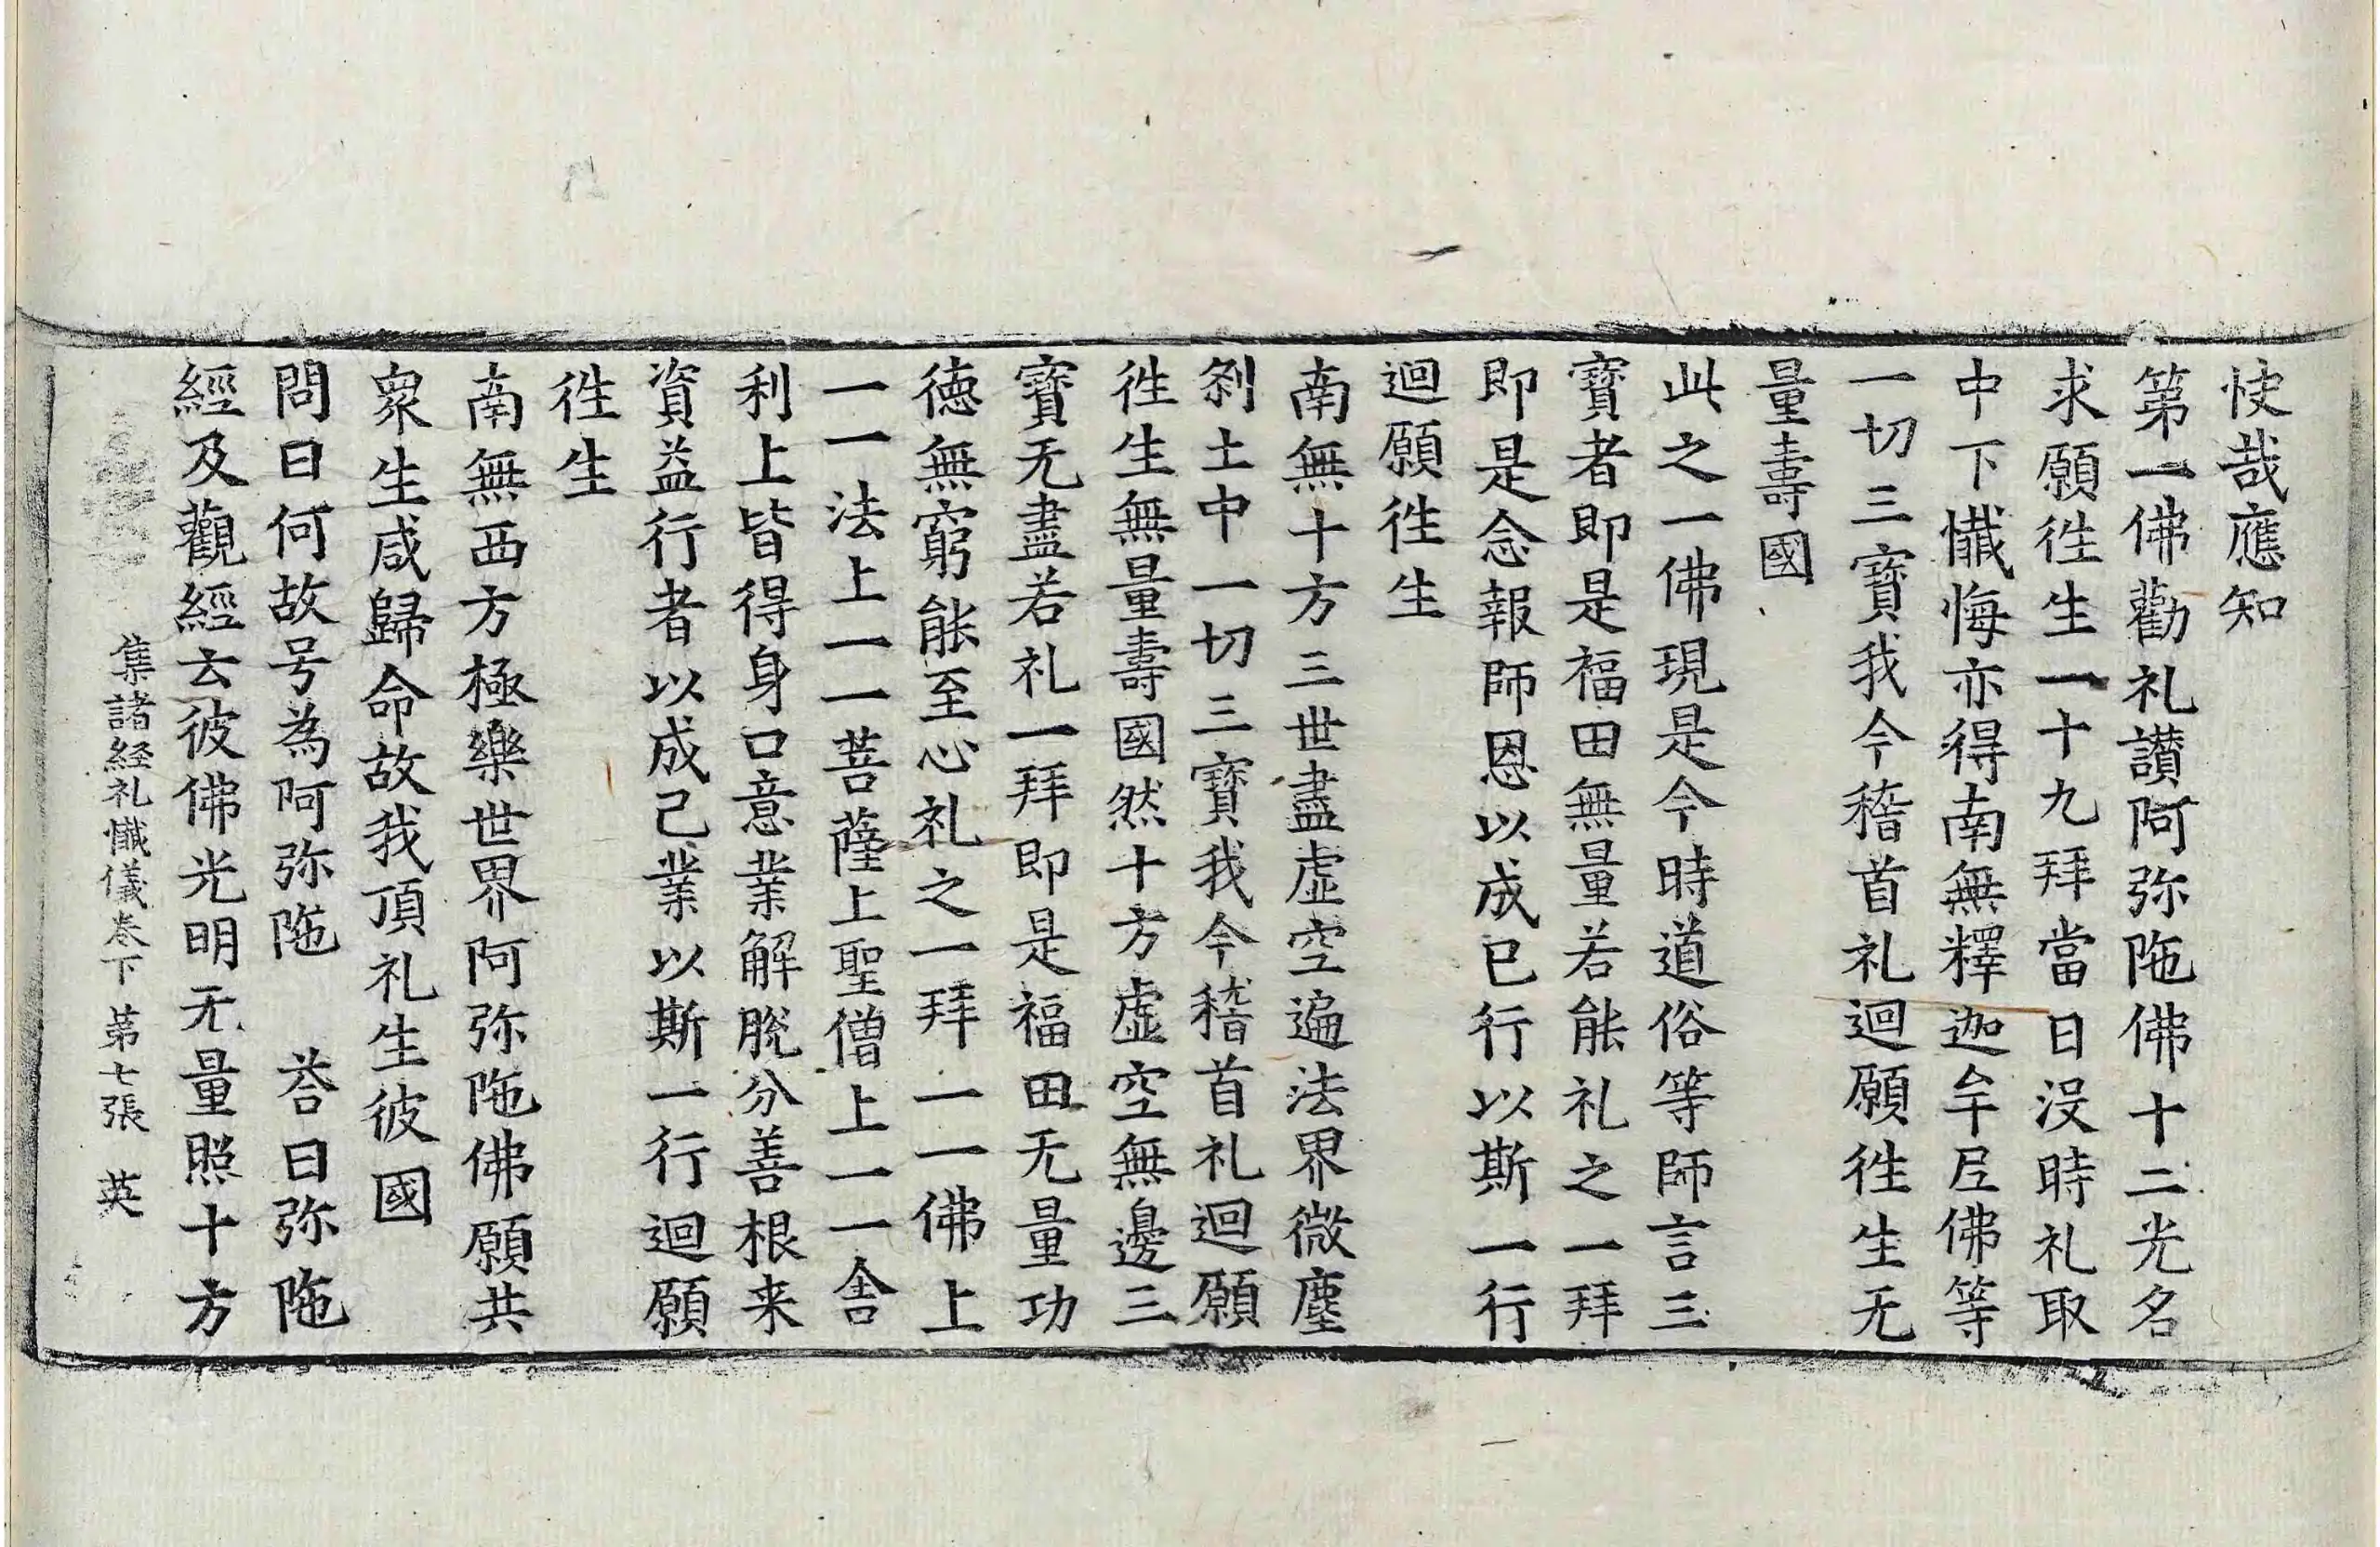 快哉應知
第一佛勸礼讃阿弥陁佛十二光名
求願徃生一十九拜當日没時礼取
中下懺悔亦得南無釋迦牟尼佛等
一切三寶我今稽首礼迴願徃生无
量壽國
此之一佛現是今時道俗等師言三
寶者即是福田無量若能礼之一拜
即是念報師恩以成已行以斯一行
迴願徃生
南無十方三世盡虚空遍法界微塵
刹土中一切三寶我今稽首礼迴願
徃生無量壽國然十方虚空無邊三
寶无盡若礼一拜即是福田无量功
德無窮能至心礼之一拜一一佛上
一一法上一一菩薩上聖僧上一一舎
利上皆得身口意業解脫分善根来
資益行者以成己業以斯一行迴願
徃生
南無西方極樂世界阿弥陁佛願共
衆生咸歸命故我頂礼生彼國
問曰何故号為阿弥陁　荅曰弥陁
經及觀經云彼佛光明无量照十方
集諸経礼懺儀卷下　第七張　英